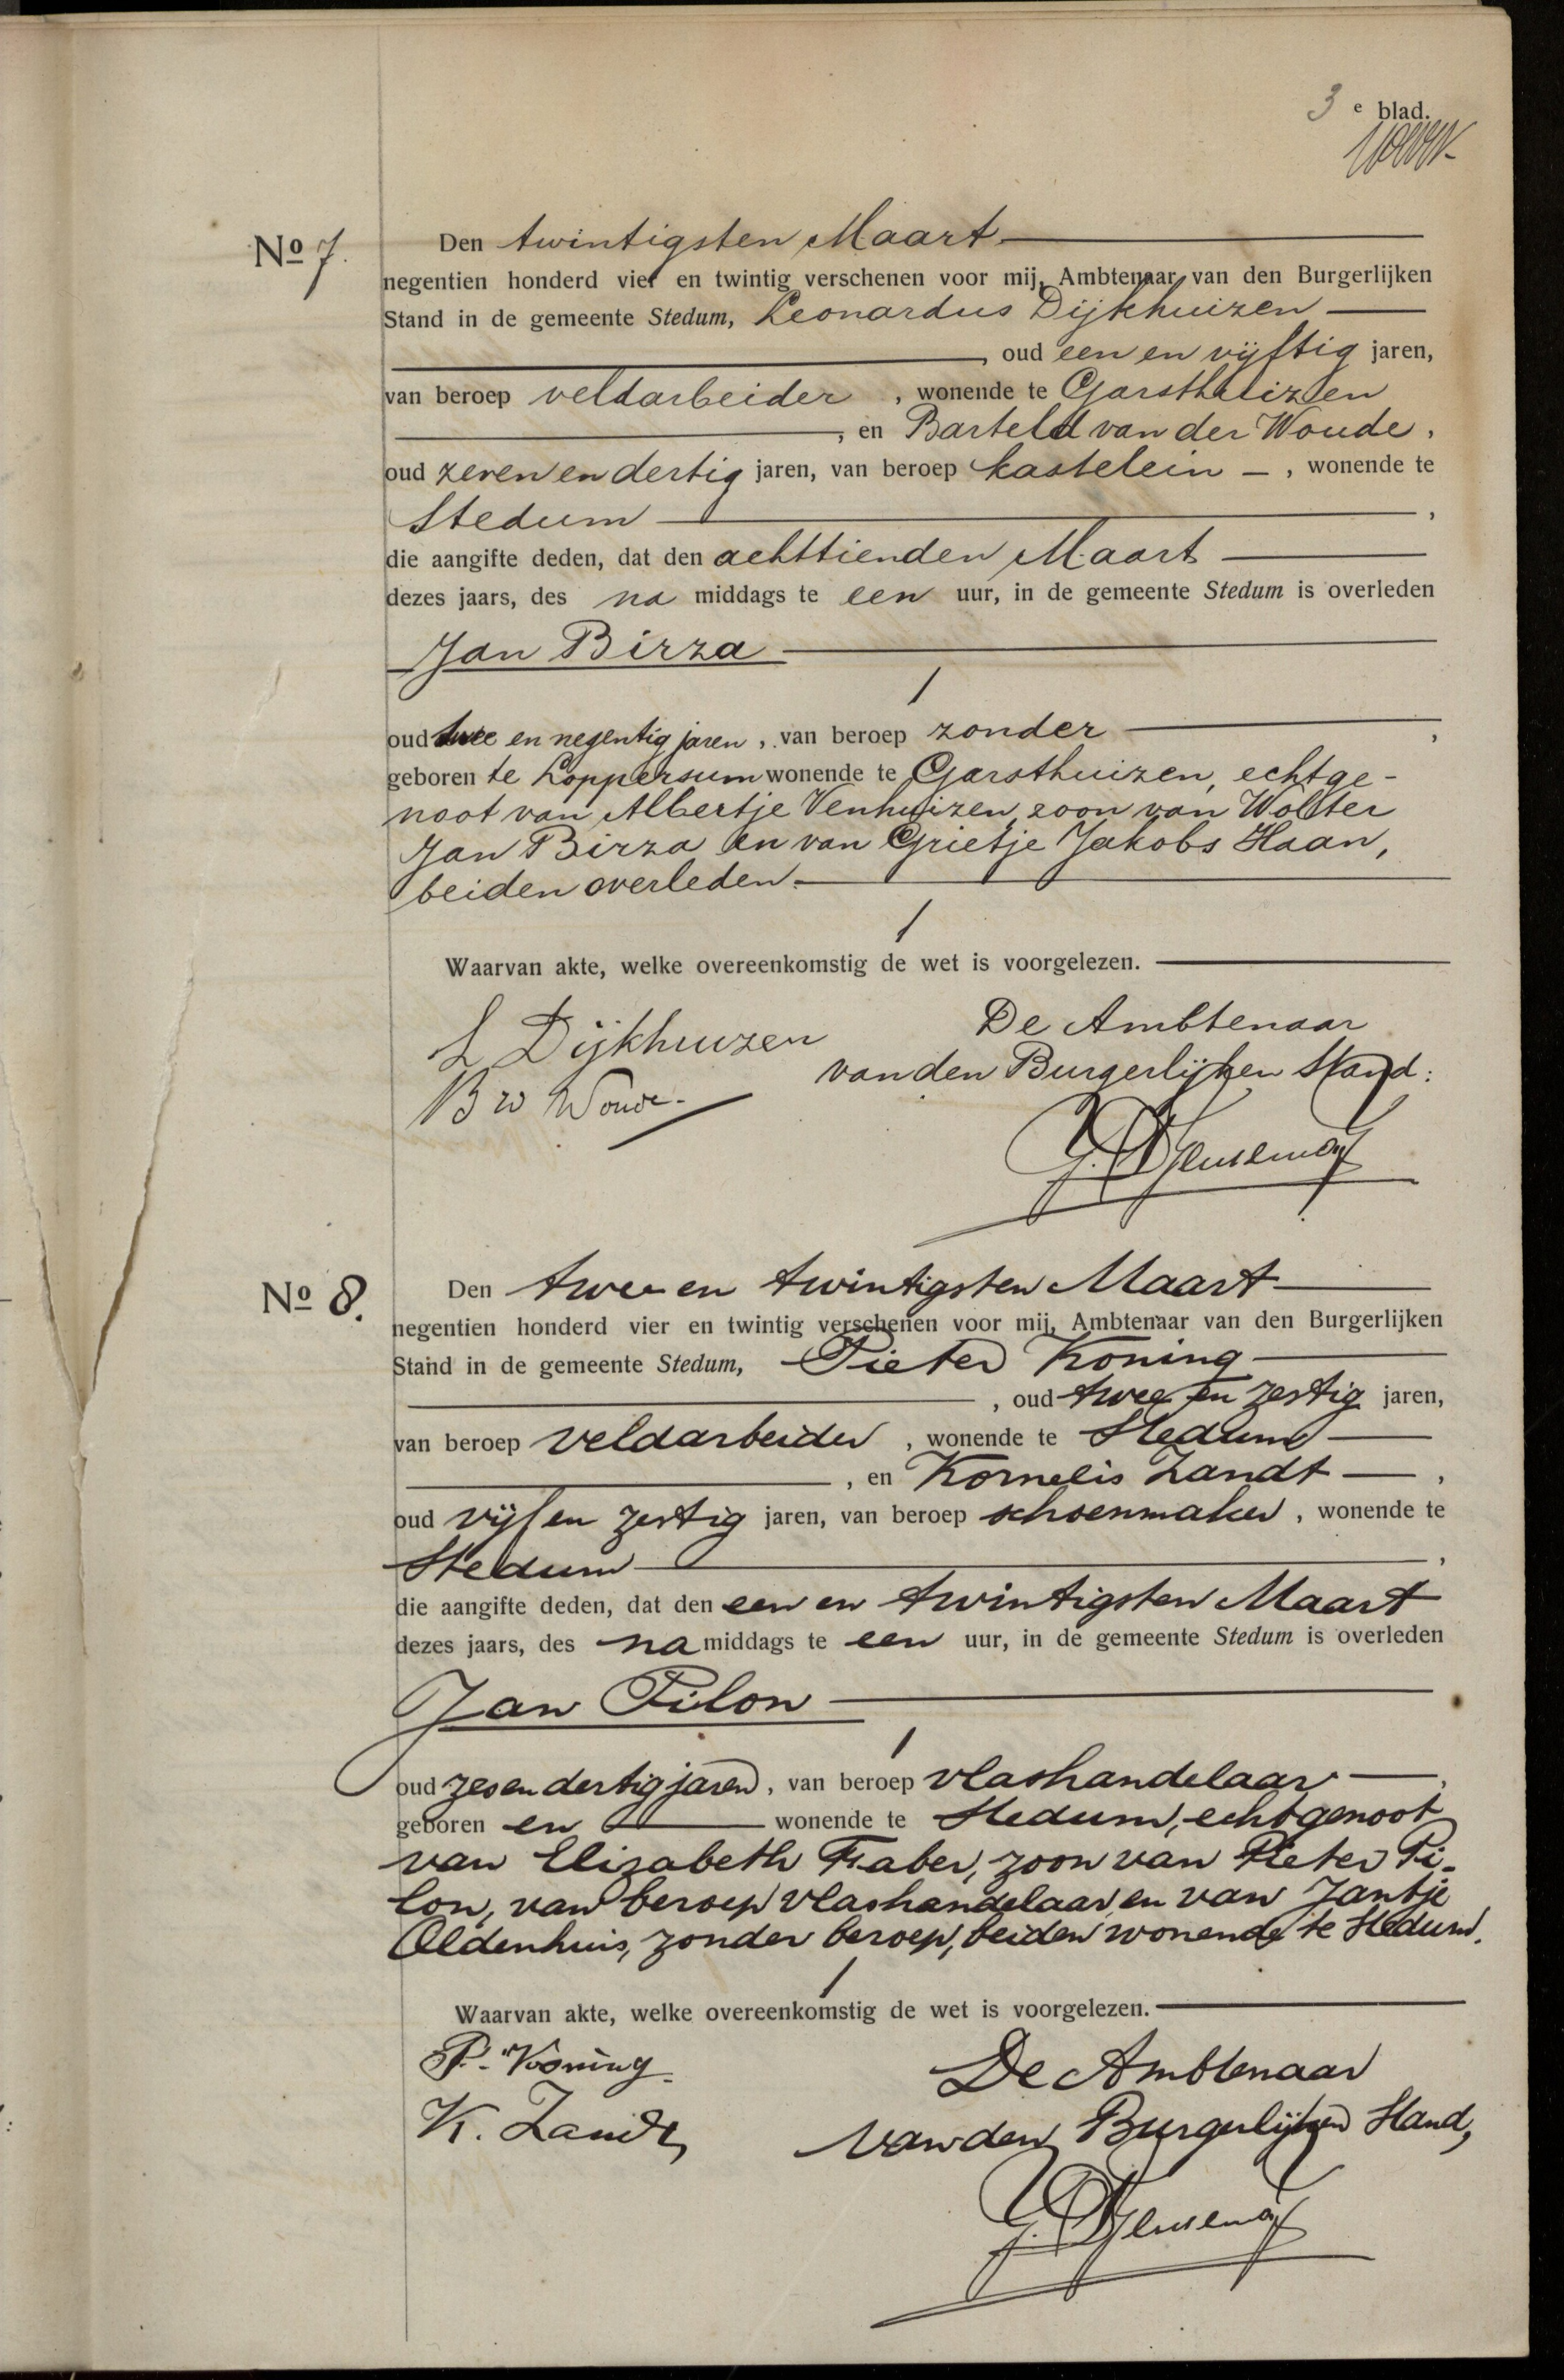 3 e blad.
No 7. Den twintigsten Maart
negentien honderd vier en twintig verschenen voor mij, Ambtenaar van den Burgerlijken
Stand in de gemeente Stedum, Leonardus Dijkhuizen
, oud een en vijftig jaren,
van beroep veldarbeider , wonende te Garsthuizen
, en Barteld van der Woude ,
oud zeven en dertig jaren, van beroep kastelein - , wonende te
Stedum ,
die aangifte deden, dat den achttienden Maart
dezes jaars, des na middags te een uur, in de gemeente Stedum is overleden
Jan Birza
oud twee en negentig jaren , van beroep zonder ,
geboren te Loppersum wonende te Garsthuizen, echtge-
noot van Albertje Venhuizen, zoon van Wolter
Jan Birza en van Grietje Jakobs Haan,
beiden overleden.
Waarvan akte, welke overeenkomstig de wet is voorgelezen.
L Dijkhuizen
De Ambtenaar
van den Burgerlijken Stand:
B vd Woude.
No 8. Den twee en twintigsten Maart
negentien honderd vier en twintig verschenen voor mij, Ambtenaar van den Burgerlijken
Stand in de gemeente Stedum, Pieter Koning
, oud twee en zestig jaren,
van beroep veldarbeider , wonende te Stedum
, en Kornelis Zandt ,
oud vijf en zestig jaren, van beroep schoenmaker , wonende te
Stedum ,
die aangifte deden, dat den een en twintigsten Maart
dezes jaars, des na middags te een uur, in de gemeente Stedum is overleden
Jan Pilon
oud zes en dertig jaren , van beroep vlashandelaar ,
geboren en wonende te Stedum, echtgenoot
van Elizabeth Faber, zoon van Pieter Pi-
lon, van beroep vlashandelaar, en van Jantje
Oldenhuis, zonder beroep, beiden wonende te Stedum.
Waarvan akte, welke overeenkomstig de wet is voorgelezen.
P. Koning
De Ambtenaar
K. Zandt
van den Burgerlijken Stand,